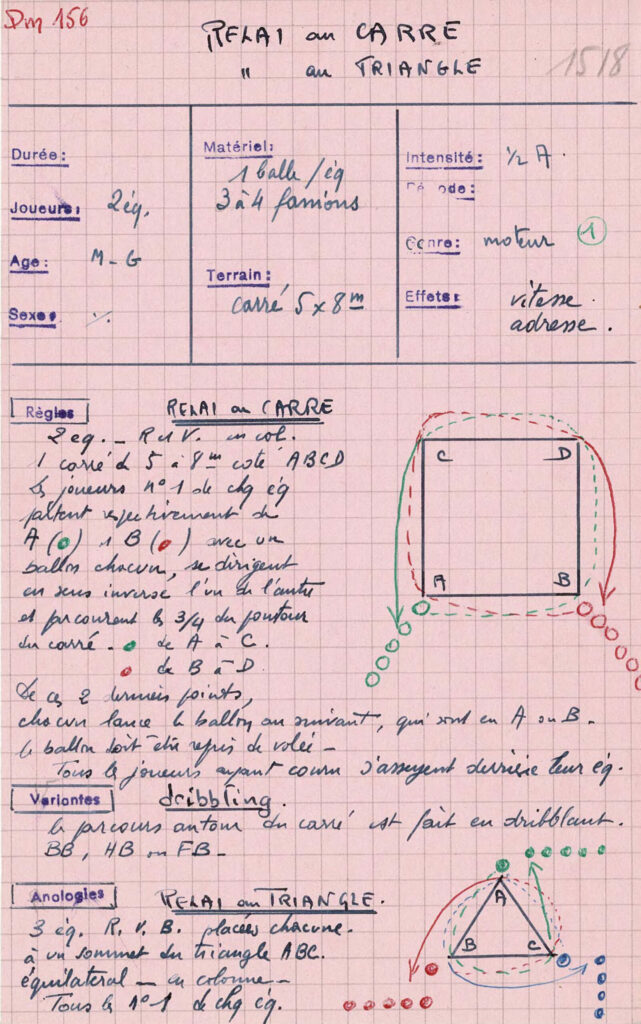 Dm 156
RELAI au CARRE
" au TRIANGLE
1518
Durée :
Joueurs : 2 éq.
Age : M - G
Sexe :
Matériel :
1 balle / éq
3 à 4 fanions
Terrain :
carré 5 x 8 m
Intensité : 1/2 A.
Période :
Genre : moteur 1
Effets : vitesse.
adresse.
Règles RELAI au CARRE
2 eq. - R et V. en col.
1 carré de 5 à 8 m coté ABCD
Les joueurs n° 1 de chq éq
partent respectivement de
A ( ) et B ( ) avec un
ballon chacun, se dirigent
en sens inverse l'un de l'autre
et parcourent les 3/4 du pourtour
du carré. de A à C.
de B à D.
De ces 2 derniers points,
chacun lance le ballon au suivant, qui sont en A ou B.
le ballon doit être repris de volée -
Tous les joueurs ayant couru s'asseyent derrière leur éq.
C D
A B
Variantes dribbling.
le parcours autour du carré est fait en dribblant.
BB, HB ou FB -
Analogies RELAI au TRIANGLE.
3 éq. R. V. B. placées chacune
à un sommet du triangle ABC.
équilatéral - en colonne -
Tous les n° 1 de chq éq.
A
B C